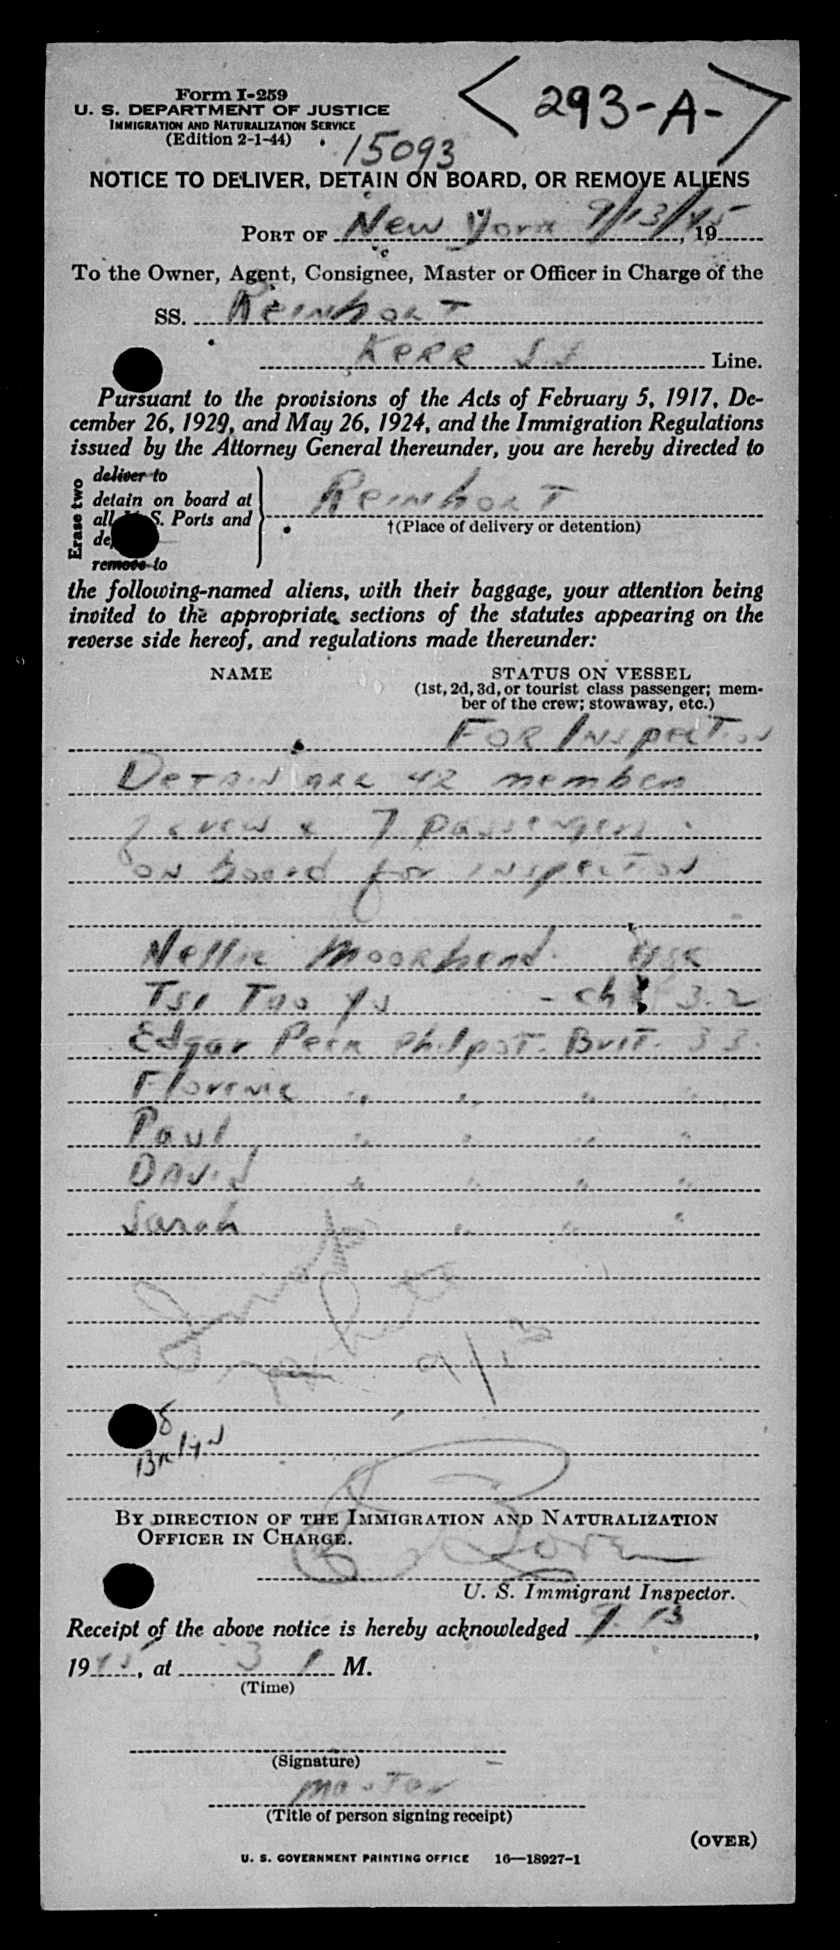 Form I-259
U. S. DEPARTMENT OF JUSTICE
IMMIGRATION AND NATURALIZATION SERVICE
(Edition 2-1-44)
293-A-
15093
NOTICE TO DELIVER, DETAIN ON BOARD, OR REMOVE ALIENS
PORT OF New York 9/13/45, 19
To the Owner, Agent, Consignee, Master or Officer in Charge of the
SS. Reinhart
Kerr SS Line.
Pursuant to the provisions of the Acts of February 5, 1917, De-
cember 26, 1920, and May 26, 1924, and the Immigration Regulations
issued by the Attorney General thereunder, you are hereby directed to
Erase two
deliver to
detain on board at
all S. Ports and
remove to
Reinhart
†(Place of delivery or detention)
the following-named aliens, with their baggage, your attention being
invited to the appropriate sections of the statutes appearing on the
reverse side hereof, and regulations made thereunder:
NAME STATUS ON VESSEL
(1st, 2d, 3d, or tourist class passenger; mem-
ber of the crew; stowaway, etc.)
For Inspection
Detain all 42 members
crew & 7 passengers
on board for inspection
Nellie Moorhead
Tsi Tao Yu - ch 32
Edgar Peck Philpot. Brit. 33
Florence " " " "
Paul " " " "
David " " " "
Sarah " " "
9/13
8
Bklyn
BY DIRECTION OF THE IMMIGRATION AND NATURALIZATION
OFFICER IN CHARGE.
U. S. Immigrant Inspector.
Receipt of the above notice is hereby acknowledged 9 13,
1945, at 3 P M.
(Time)
(Signature)
Master
(Title of person signing receipt)
(OVER)
U. S. GOVERNMENT PRINTING OFFICE 16—18927-1